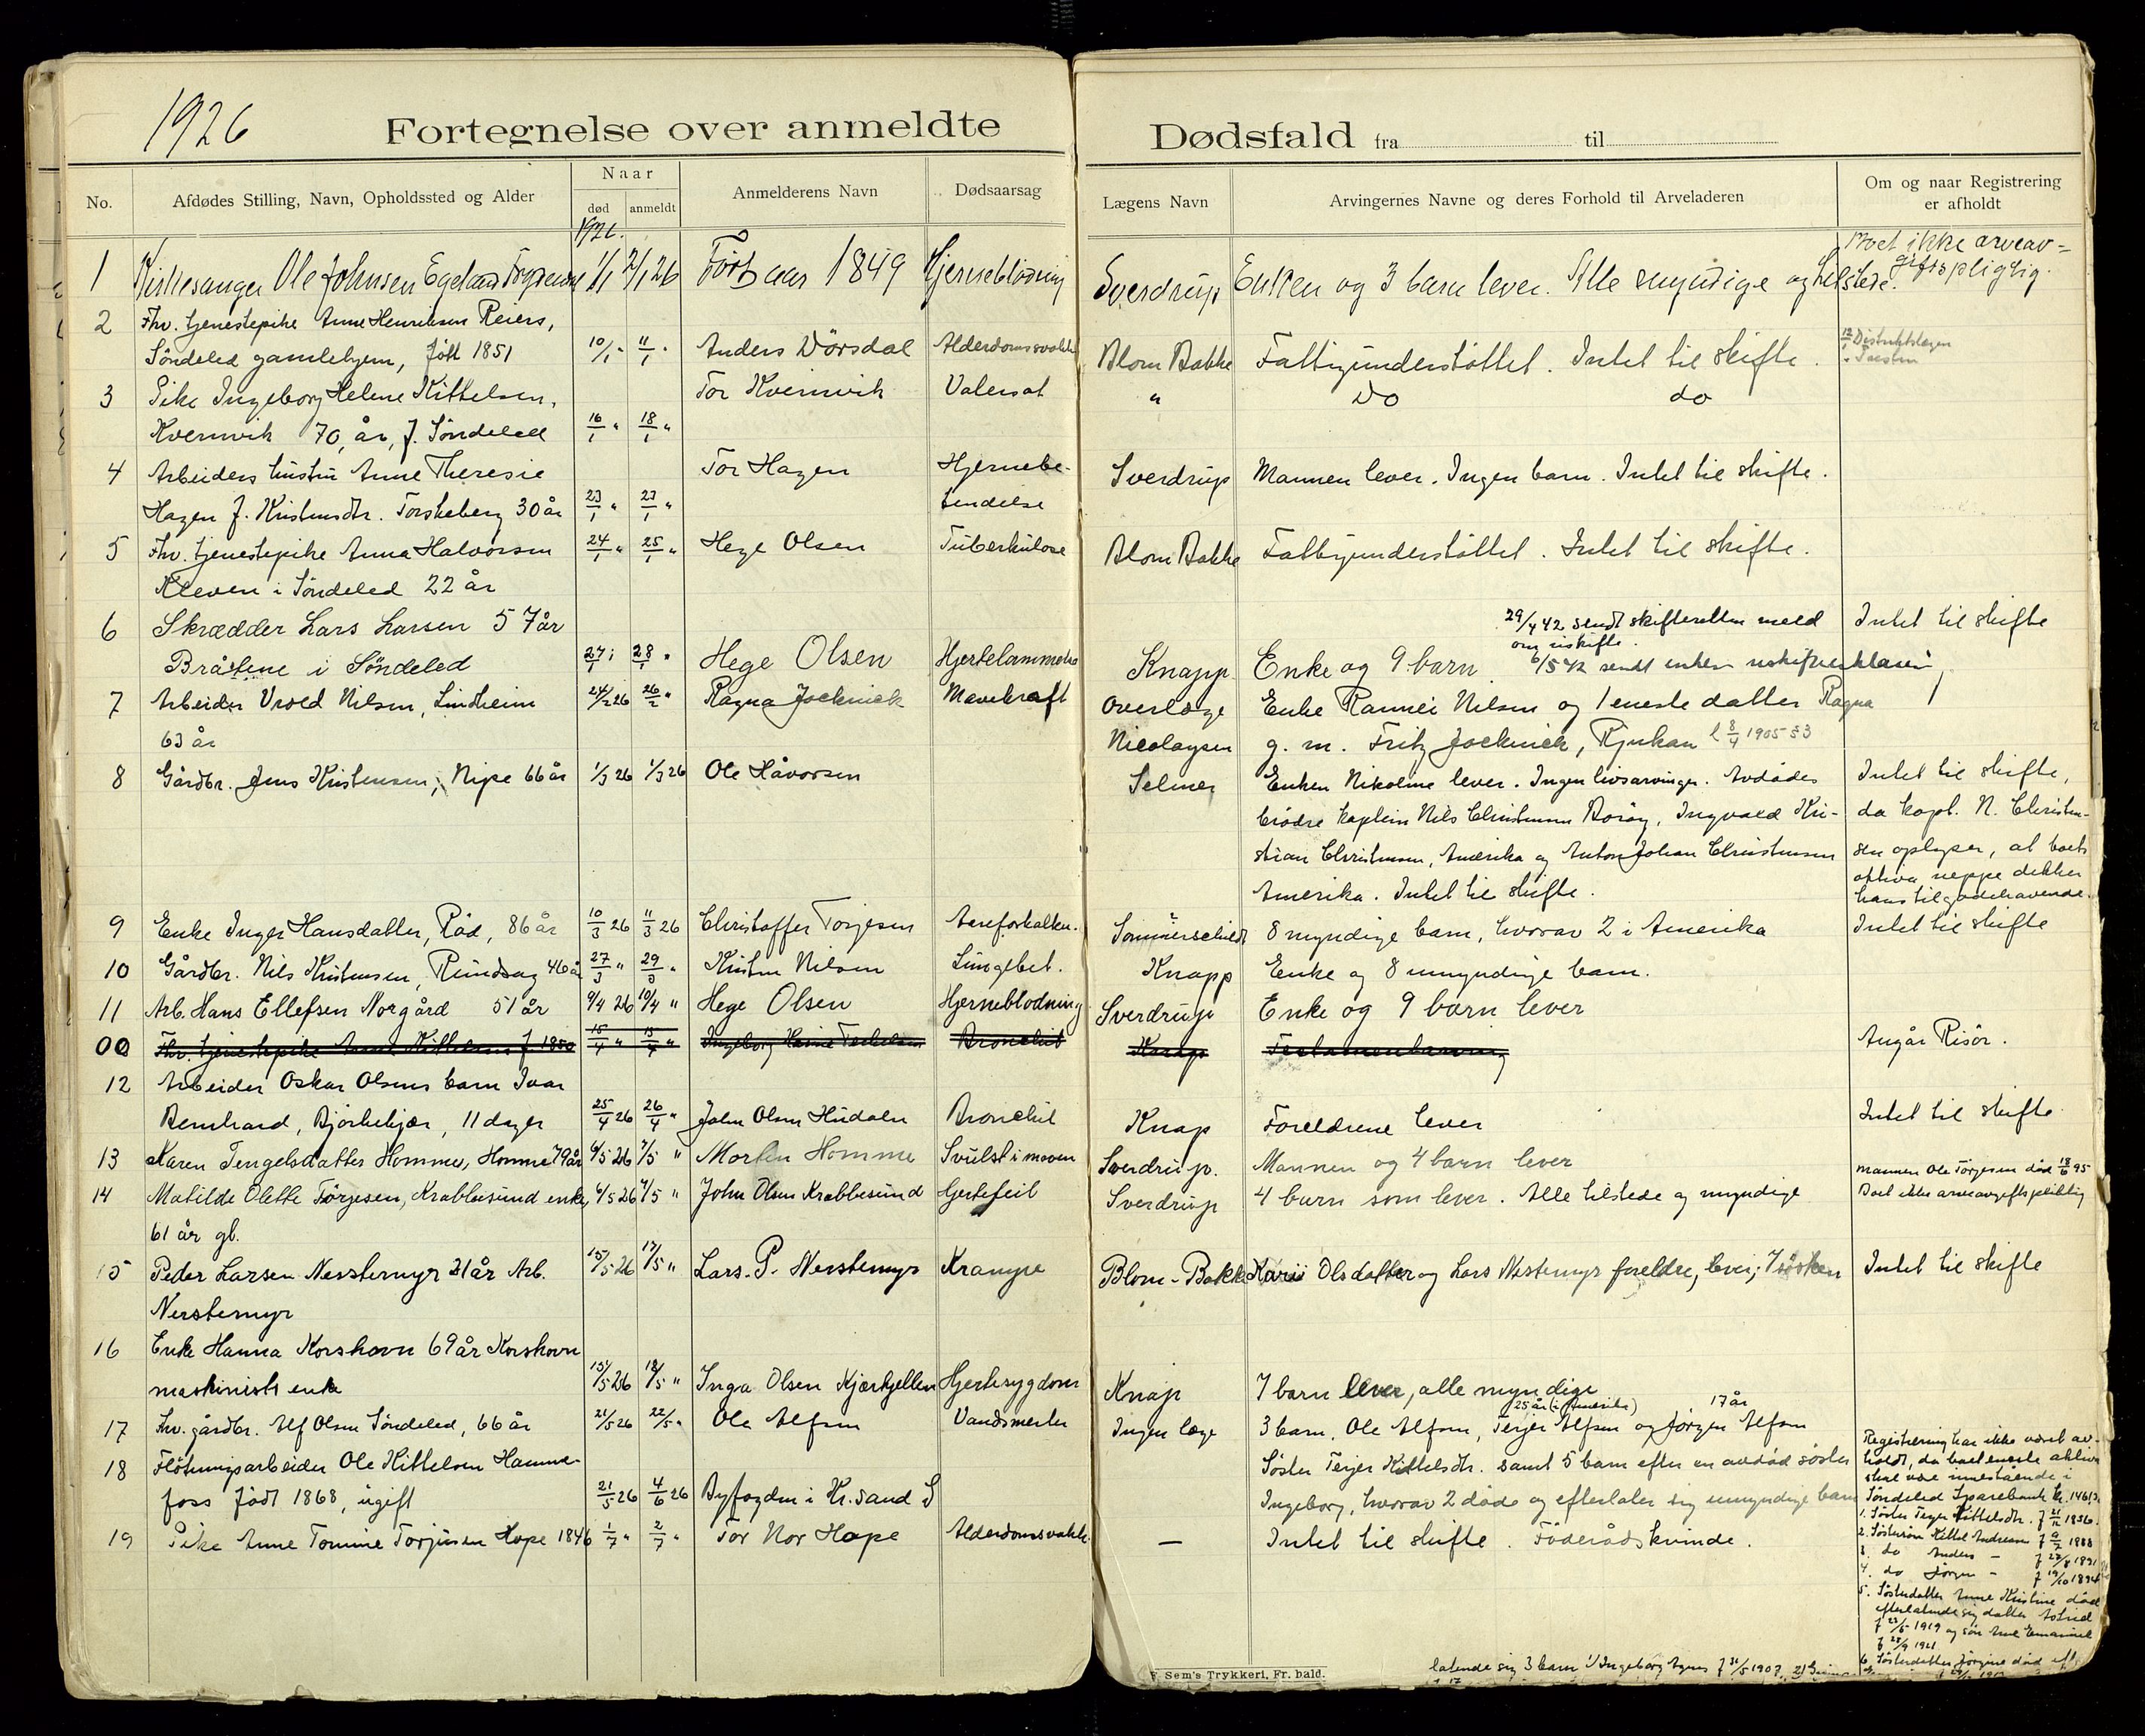 1926
Fortegnelse over anmeldte Dødsfald fra til
No.
Afdødes Stilling, Navn, Opholdssted og Alder
Naar
død
anmeldt
Anmelderens Navn
Dødsaarsag
Lægens Navn
Arvingernes Navne og deres Forhold til Arveladeren
Om og naar Registrering
er afholdt
1926.
1 Kirkesanger Ole Johnsen Egeland 1/1 2/1 26 Født aar 1849 Hjerneblödning Sverdrup Enken og 3 barn lever. Alle myndige og tilstede.
Boet ikke arveav-
giftspligtig.
2 Fhv. tjenestepike Anne Henriksen Reiers,
Söndeled gamlehjem, født 1851 10/1 " 11/1 " Anders Dörsdal Alderdomssvakh. Blom Bakke Fattigunderstöttet. Intet til skifte.
3 Pike Ingeborg Helene Kittelsen, Tor Kvernvik " Do do
Kvernvik 70 år, f. Söndeled 16/1 " 18/1 "
4 Arbeiders hustru Anne Theresie Tor Hagen Hjernebe- Sverdrup Mannen lever. Ingen barn. Intet til skifte.
Hagen f. Kristensdtr. Torskeberg 30 år 23/1 " 23/1 " tendelse
5 Fhv. tjenestepike Anna Halvorsen 24/1 " 25/1 " Hege Olsen Tuberkulose Blom Bakke Fattigunderstöttet. Intet til skifte.
Kleven i Söndeled 22 år
6 Skrædder Lars Larsen 57 år 29/4 42 sendt skifteretten meld Intet til skifte
om uskifte.
Bråtene i Söndeled 27/1 28/1 " Hege Olsen Hjertelammelse Knapp Enke og 9 barn. 6/5 42 sendt enken uskifteerklæring
7 Arbeider Vrold Nilsen, Lindheim 24/2 26 26/2 " Ragna Jocknick Mavekræft Overlæge Enke Rannei Nilsen og 1 eneste datter Ragna
63 år Nicolaysen g. m. Fritz Jocknick, Rjukan f 8/4 1905 §3
8 Gårdbr. Jens Kristensen, Nipe 66 år 1/3 26 1/3 26 Ole Håvorsen Selmer Enken Nikoline lever. Ingen livsarvinger. Avdödes Intet til skifte,
brödre kaptein Nils Christensen Boröy, Ingvald Kri- da kapt. N. Christen-
stian Christensen, Amerika og Anton Johan Christensen sen oplyser, at boets
Amerika. Intet til skifte. aktiva neppe dekker
hans tilgodehavende.
9 Enke Inger Hansdatter, Röd, 86 år 10/3 26 11/3 26 Christoffer Torjesen Aareforkalkn. Sommerschield 8 myndige barn, hvorav 2 i Amerika Intet til skifte
10 Gårdbr. Nils Kristensen, Rundsag 46 år 27/3 " 29/3 " Kristen Nilsen Lungebet. Knapp Enke og 8 umyndige barn.
11 Arb. Hans Ellefsen Norgård 51 år 9/4 26 10/4 " Hege Olsen Hjerneblodning Sverdrup Enke og 9 barn lever
00 Fhv. tjenestepike Kittelsen f 1850 15/4 " 15/4 " Bronchit Knap Testamentarving Angår Risör.
12 Arbeider Oskar Olsens barn Ivar
Bernhard, Bjorkekjær, 11 dager 25/4 26 26/4 " John Olsen Hudalen Bronchit Knap Foreldrene lever Intet til skifte
13 Karen Tengelsdatter Homme, Homme 79 år 6/5 26 7/5 " Morten Homme Svulst i maven Sverdrup. Mannen og 4 barn lever
mannen Ole Torjesen död 18/6 95
14 Matilde Olette Törjesen, Krabbesund enke, 6/5 26 7/5 " John Olsen Krabbesund Hjertefeil Sverdrup 4 barn som lever. Alle tilstede og myndige Boet ikke arveavgiftspliktig
61 år gl.
15 Peder Larsen Nerstemyr 21 år Arb. 15/5 26 17/5 " Lars. P. Nerstemyr Krampe Blom-Bakke Kari Olsdatter og Lars Nerstemyr foreldre, lever; 7 søsken Intet til skifte
Nerstemyr
16 Enke Hanna Korshavn 69 år Korshavn
maskinists enke 15/5 26 18/5 " Inga Olsen Kjærkjellen Hjertesygdom Knap 7 barn lever, alle myndige
25 år (i Amerika) 17 år
17 Fhv. gårdbr. Alf Olsen Söndeled, 66 år 21/5 26 22/5 " Ole Alfsen Ingen læge 3 barn, Ole Alfsen, Terjer Alfsen og Jörgen Alfsen
18 Flötningsarbeider Ole Kittelsen Hamme- Söster Terjer Kittelsdtr. samt 5 barn efter en avdöd söster
foss født 1868, ugift 21/5 26 4/6 26 Byfogden i Kr.sand S Ingeborg, hvorav 2 döde og efterlater sig umyndige barn
19 Pike Anne Tomine Torjusen Hope 1846 1/7 " 2/7 " Tor Nor Hope Alderdomsvakh. — Intet til skifte. Föderådskvinde.
Registrering har ikke vært av-
holdt, da boets eneste aktiva
skal være innestående i
Söndeled Sparebank kr.
1. Söster Terjer Kittelsdtr. f 1856.
2. Söstersön Kittel Andreasen f 1888
3. do Anders - f 1891
4. do Jörgen - f 19/10 1894
5. Sösterdatter Anne Kristine död
efterlatende sig datter Astrid
f 1919 og sön Arne Emanuel
f 25/9 1921
6. Sösterdatter Jörgine död eft
latende sig 3 barn 1/ Ingeborg Agnes f 31/5 1907.
F. Sem's Trykkeri, Fr. hald.